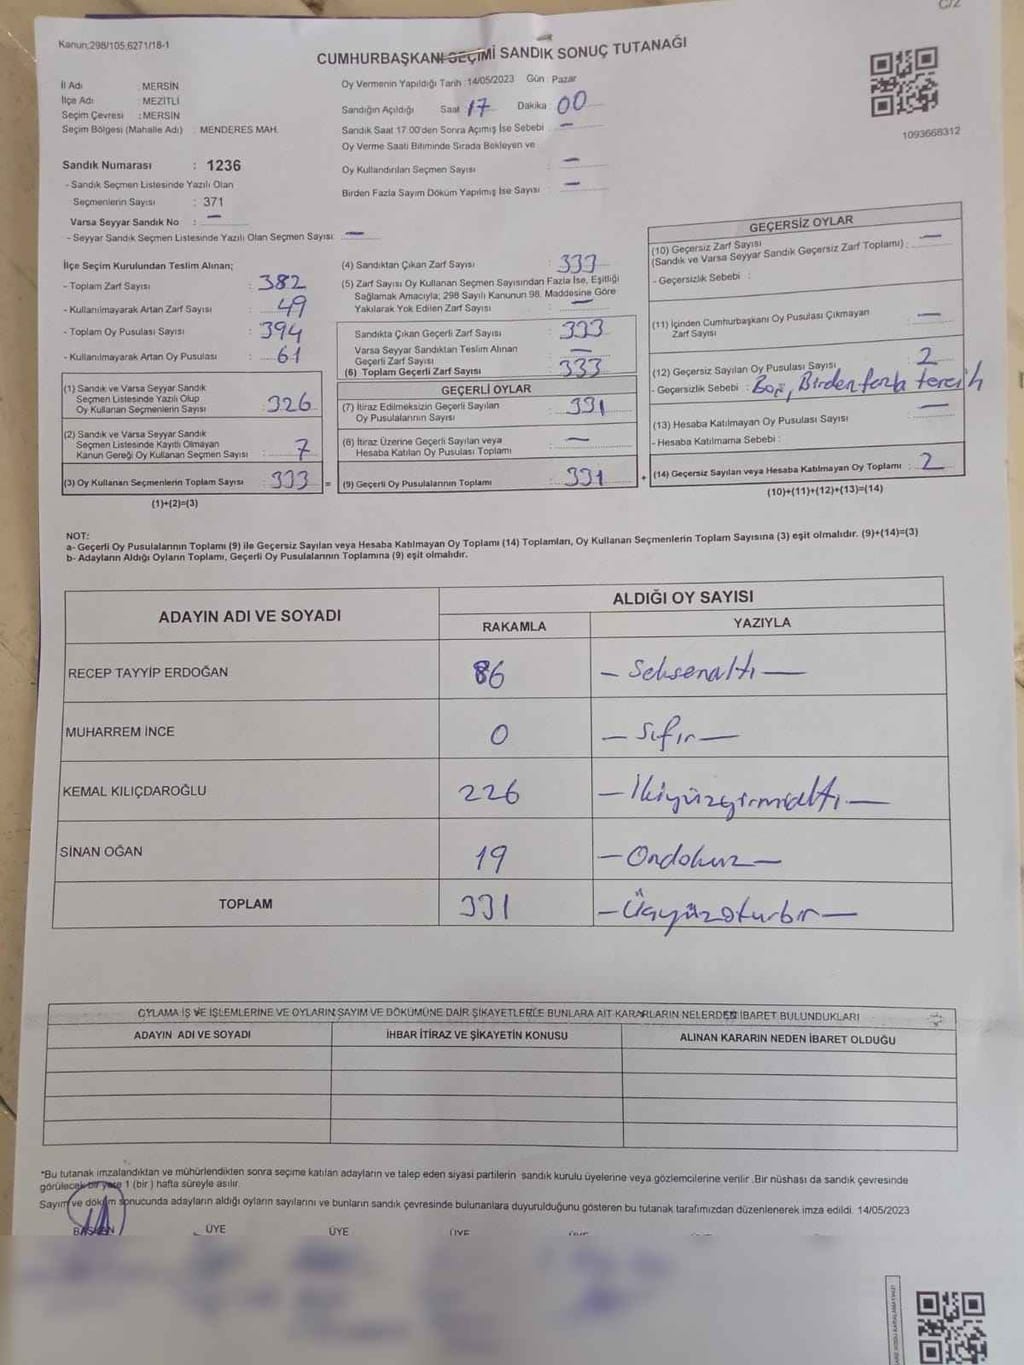 C/2
Kanun:298/105,6271/18-1
CUMHURBAŞKANI SEÇİMİ SANDIK SONUÇ TUTANAĞI
İl Adı : MERSİN
İlçe Adı : MEZİTLİ
Seçim Çevresi : MERSİN
Seçim Bölgesi (Mahalle Adı) : MENDERES MAH.
Sandık Numarası : 1236
- Sandık Seçmen Listesinde Yazılı Olan
Seçmenlerin Sayısı : 371
Varsa Seyyar Sandık No : —
- Seyyar Sandık Seçmen Listesinde Yazılı Olan Seçmen Sayısı: —
Oy Vermenin Yapıldığı Tarih :14/05/2023 Gün : Pazar
Sandığın Açıldığı Saat : 17 Dakika : 00
Sandık Saat 17.00'den Sonra Açılmış İse Sebebi : —
Oy Verme Saati Bitiminde Sırada Bekleyen ve
Oy Kullandırılan Seçmen Sayısı : —
Birden Fazla Sayım Döküm Yapılmış İse Sayısı : —
1093668312
İlçe Seçim Kurulundan Teslim Alınan;
- Toplam Zarf Sayısı : 382
- Kullanılmayarak Artan Zarf Sayısı : 49
- Toplam Oy Pusulası Sayısı : 394
- Kullanılmayarak Artan Oy Pusulası : 61
(1) Sandık ve Varsa Seyyar Sandık
Seçmen Listesinde Yazılı Olup
Oy Kullanan Seçmenlerin Sayısı : 326
(2) Sandık ve Varsa Seyyar Sandık
Seçmen Listesinde Kayıtlı Olmayan
Kanun Gereği Oy Kullanan Seçmen Sayısı : 7
(3) Oy Kullanan Seçmenlerin Toplam Sayısı : 333
(1)+(2)=(3)
(4) Sandıktan Çıkan Zarf Sayısı : 333
(5) Zarf Sayısı Oy Kullanan Seçmen Sayısından Fazla İse, Eşitliği
Sağlamak Amacıyla; 298 Sayılı Kanunun 98. Maddesine Göre
Yakılarak Yok Edilen Zarf Sayısı : —
Sandıkta Çıkan Geçerli Zarf Sayısı : 333
Varsa Seyyar Sandıktan Teslim Alınan
Geçerli Zarf Sayısı : —
(6) Toplam Geçerli Zarf Sayısı : 333
GEÇERLİ OYLAR
(7) İtiraz Edilmeksizin Geçerli Sayılan
Oy Pusulalarının Sayısı : 331
(8) İtiraz Üzerine Geçerli Sayılan veya
Hesaba Katılan Oy Pusulası Toplamı : —
= (9) Geçerli Oy Pusulalarının Toplamı : 331 +
GEÇERSİZ OYLAR
(10) Geçersiz Zarf Sayısı
(Sandık ve Varsa Seyyar Sandık Geçersiz Zarf Toplamı) : —
- Geçersizlik Sebebi :
(11) İçinden Cumhurbaşkanı Oy Pusulası Çıkmayan
Zarf Sayısı : —
(12) Geçersiz Sayılan Oy Pusulası Sayısı : 2
- Geçersizlik Sebebi : Boş, Birden fazla tercih
(13) Hesaba Katılmayan Oy Pusulası Sayısı : —
- Hesaba Katılmama Sebebi :
(14) Geçersiz Sayılan veya Hesaba Katılmayan Oy Toplamı : 2
(10)+(11)+(12)+(13)=(14)
NOT:
a- Geçerli Oy Pusulalarının Toplamı (9) ile Geçersiz Sayılan veya Hesaba Katılmayan Oy Toplamı (14) Toplamları, Oy Kullanan Seçmenlerin Toplam Sayısına (3) eşit olmalıdır. (9)+(14)=(3)
b- Adayların Aldığı Oyların Toplamı, Geçerli Oy Pusulalarının Toplamına (9) eşit olmalıdır.
ADAYIN ADI VE SOYADI ALDIĞI OY SAYISI
RAKAMLA YAZIYLA
RECEP TAYYİP ERDOĞAN 86 — Seksenaltı —
MUHARREM İNCE 0 — Sıfır —
KEMAL KILIÇDAROĞLU 226 — İkiyüzyirmialtı —
SİNAN OĞAN 19 — Ondokuz —
TOPLAM 331 — Üçyüzoturbir —
OYLAMA İŞ VE İŞLEMLERİNE VE OYLARIN SAYIM VE DÖKÜMÜNE DAİR ŞİKAYETLERLE BUNLARA AİT KARARLARIN NELERDEN İBARET BULUNDUKLARI
ADAYIN ADI VE SOYADI İHBAR İTİRAZ VE ŞİKAYETİN KONUSU ALINAN KARARIN NEDEN İBARET OLDUĞU
*Bu tutanak imzalandıktan ve mühürlendikten sonra seçime katılan adayların ve talep eden siyasi partilerin sandık kurulu üyelerine veya gözlemcilerine verilir .Bir nüshası da sandık çevresinde
görülecek bir yere 1 (bir ) hafta süreyle asılır.
Sayım ve döküm sonucunda adayların aldığı oyların sayılarını ve bunların sandık çevresinde bulunanlara duyurulduğunu gösteren bu tutanak tarafımızdan düzenlenerek imza edildi. 14/05/2023
BAŞKAN ÜYE ÜYE ÜYE